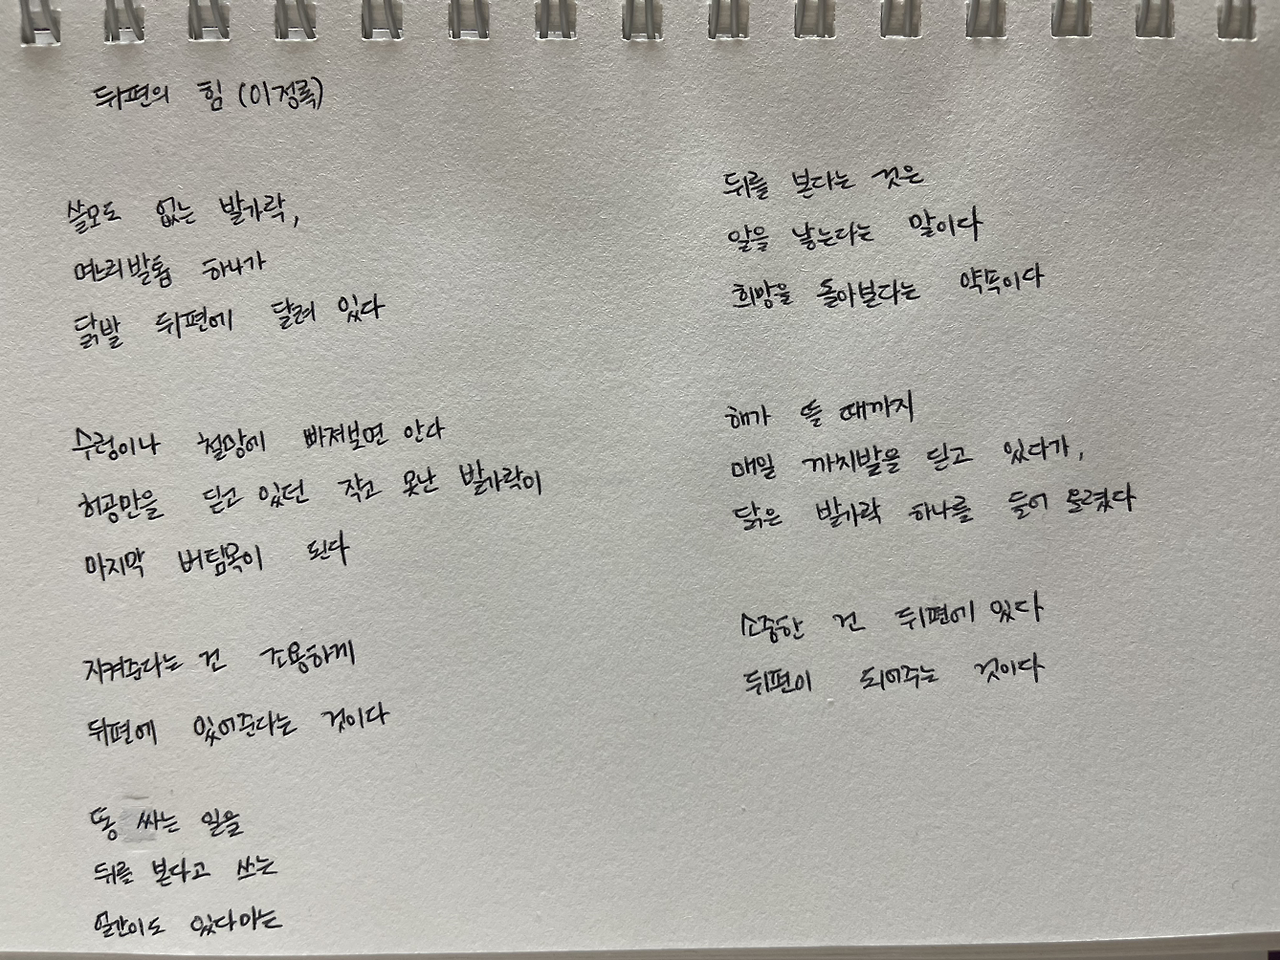 뒤편의 힘 (이정록)
쓸모도 없는 발가락,
며느리발톱 하나가
닭발 뒤편에 달려 있다
수렁이나 철망에 빠져보면 안다
허공만을 딛고 있던 작고 못난 발가락이
마지막 버팀목이 된다
지켜준다는 건 조용하게
뒤편에 있어준다는 것이다
똥 싸는 일을
뒤를 본다고 쓰는
얼간이도 있다마는
뒤를 본다는 것은
알을 낳는다는 말이다
희망을 돌아본다는 약속이다
해가 뜰 때까지
매일 까치발을 딛고 있다가,
닭은 발가락 하나를 들어 올렸다
소중한 건 뒤편에 있다
뒤편이 되어주는 것이다